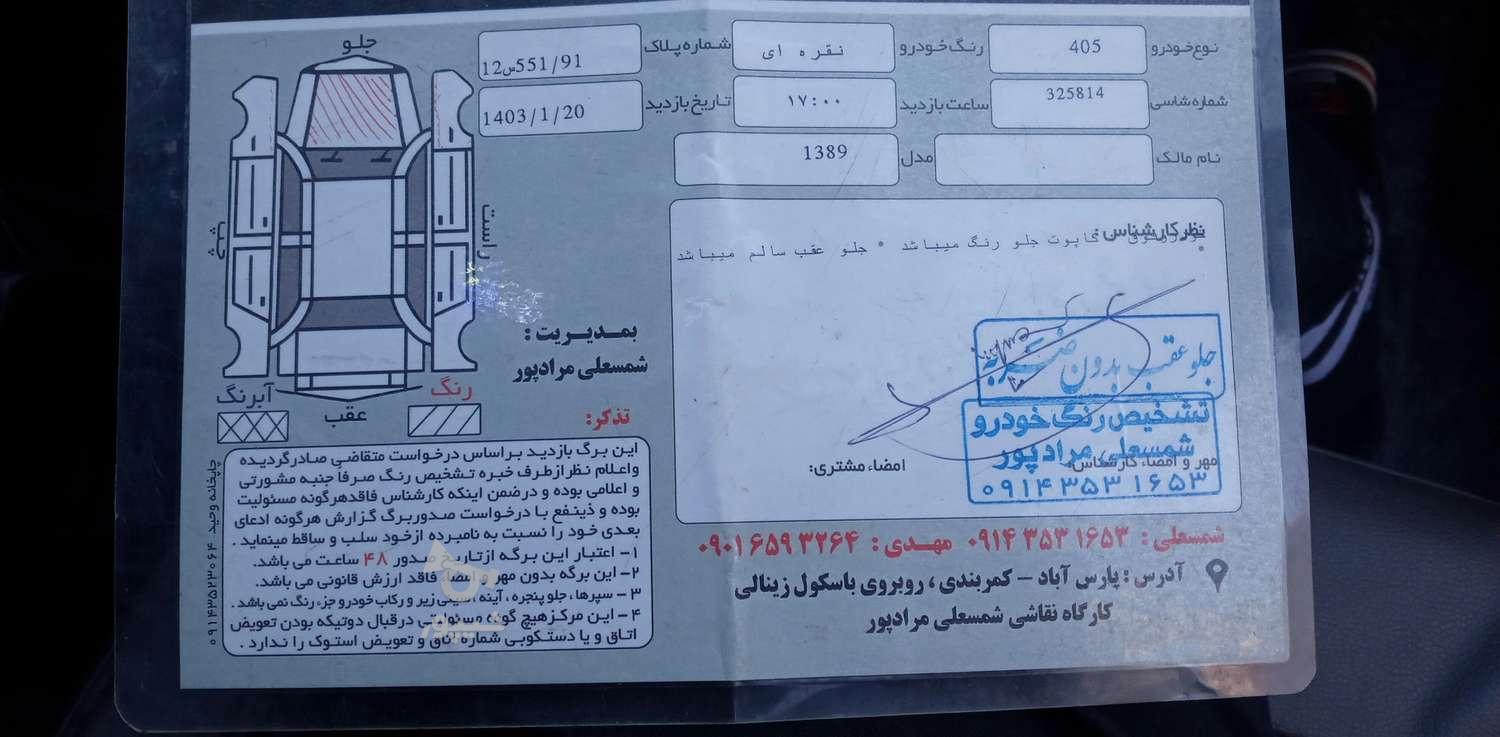 نوع خودرو 405 رنگ خودرو نقره ای شماره پلاک 12س551/91
شماره شاسی 325814 ساعت بازدید ۱۷:۰۰ تاریخ بازدید 1403/1/20
نام مالک مدل 1389
جلو
چپ
راست
عقب
رنگ
آبرنگ
نظر کارشناس :
کاپوت جلو رنگ میباشد * جلو عقب سالم میباشد
جلو عقب بدون ضربه
تشخیص رنگ خودرو
شمسعلی مرادپور
۰۹۱۴۳۵۳۱۶۵۳
مهر و امضاء کارشناس:
امضاء مشتری:
بمدیریت :
شمسعلی مرادپور
تذکر:
این برگ بازدید براساس درخواست متقاضی صادر گردیده
و اعلام نظر از طرف خبره تشخیص رنگ صرفاً جنبه مشورتی
و اعلامی بوده و درضمن اینکه کارشناس فاقد هرگونه مسئولیت
بوده و ذینفع با درخواست صدور برگ گزارش هرگونه ادعای
بعدی خود را نسبت به نامبرده از خود سلب و ساقط مینماید .
۱- اعتبار این برگه از تاریخ صدور ۴۸ ساعت می باشد.
۲- این برگه بدون مهر و امضا فاقد ارزش قانونی می باشد.
۳- سپرها ، جلو پنجره ، آینه ، سینی زیر و رکاب خودرو جزء رنگ نمی باشد .
۴- این مرکز هیچ گونه مسئولیتی در قبال دوتیکه بودن تعویض
اتاق و یا دستکوبی شماره اتاق و تعویض استوک را ندارد .
چاپخانه وحید ۰۹۱۴۳۵۲۳۰۶۴
شمسعلی : ۰۹۱۴۳۵۳۱۶۵۳ مهدی : ۰۹۰۱۶۵۹۳۲۶۴
آدرس : پارس آباد - کمربندی ، روبروی باسکول زینالی
کارگاه نقاشی شمسعلی مرادپور